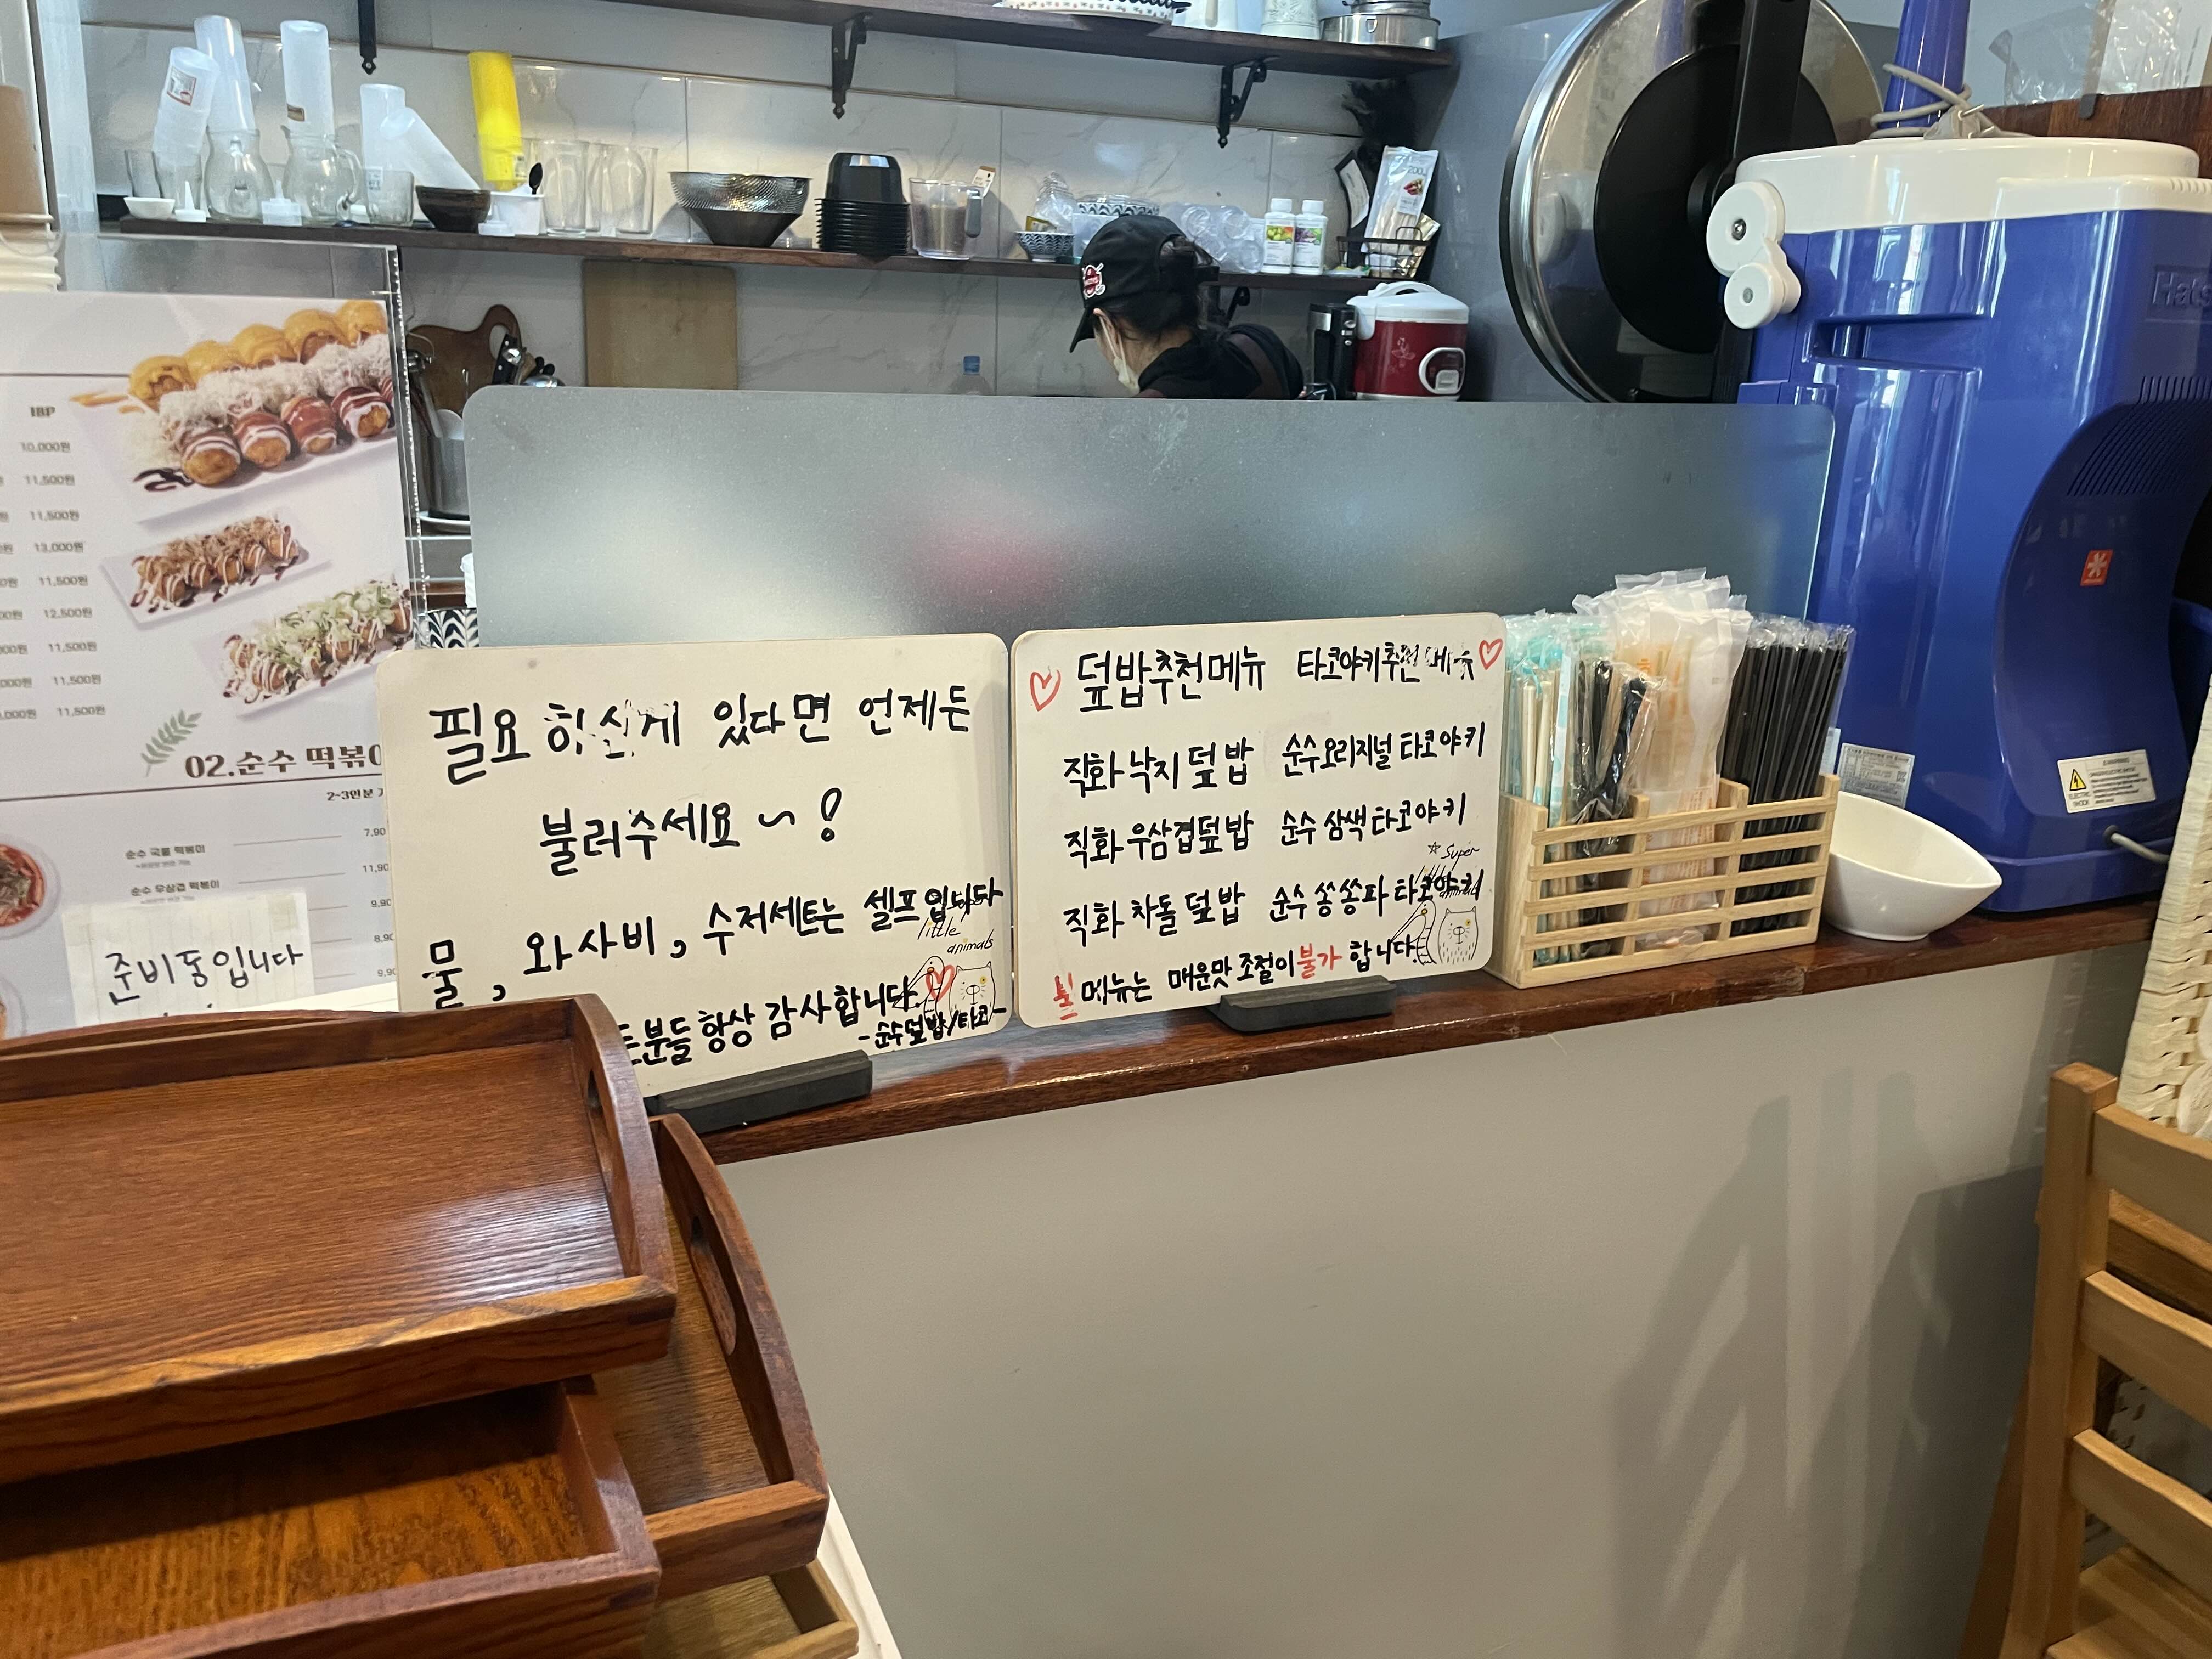 18P
10,000원
11,500원
11,500원
13,000원
11,500원
12,500원
11,500원
11,500원
11,500원
02.순수 떡볶이
2~3인분
순수 국물 떡볶이
순수 우삼겹 떡볶이
7,90
11,90
9,90
8,90
9,90
준비중입니다
필요하신게 있다면 언제든
불러주세요~!
물, 와사비, 수저세트는 셀프입니다
든분들 항상 감사합니다.
-순수덮밥/타코-
little
animals
♡ 덮밥추천메뉴 타코야키추천메뉴 ♡
직화낙지덮밥 순수오리지널 타코야키
직화우삼겹덮밥 순수삼색타코야키
직화차돌덮밥 순수쏭쏭파타코야키
메뉴는 매운맛 조절이 불가합니다.
☆Super
little
animals
ELECTRIC
SHOCK